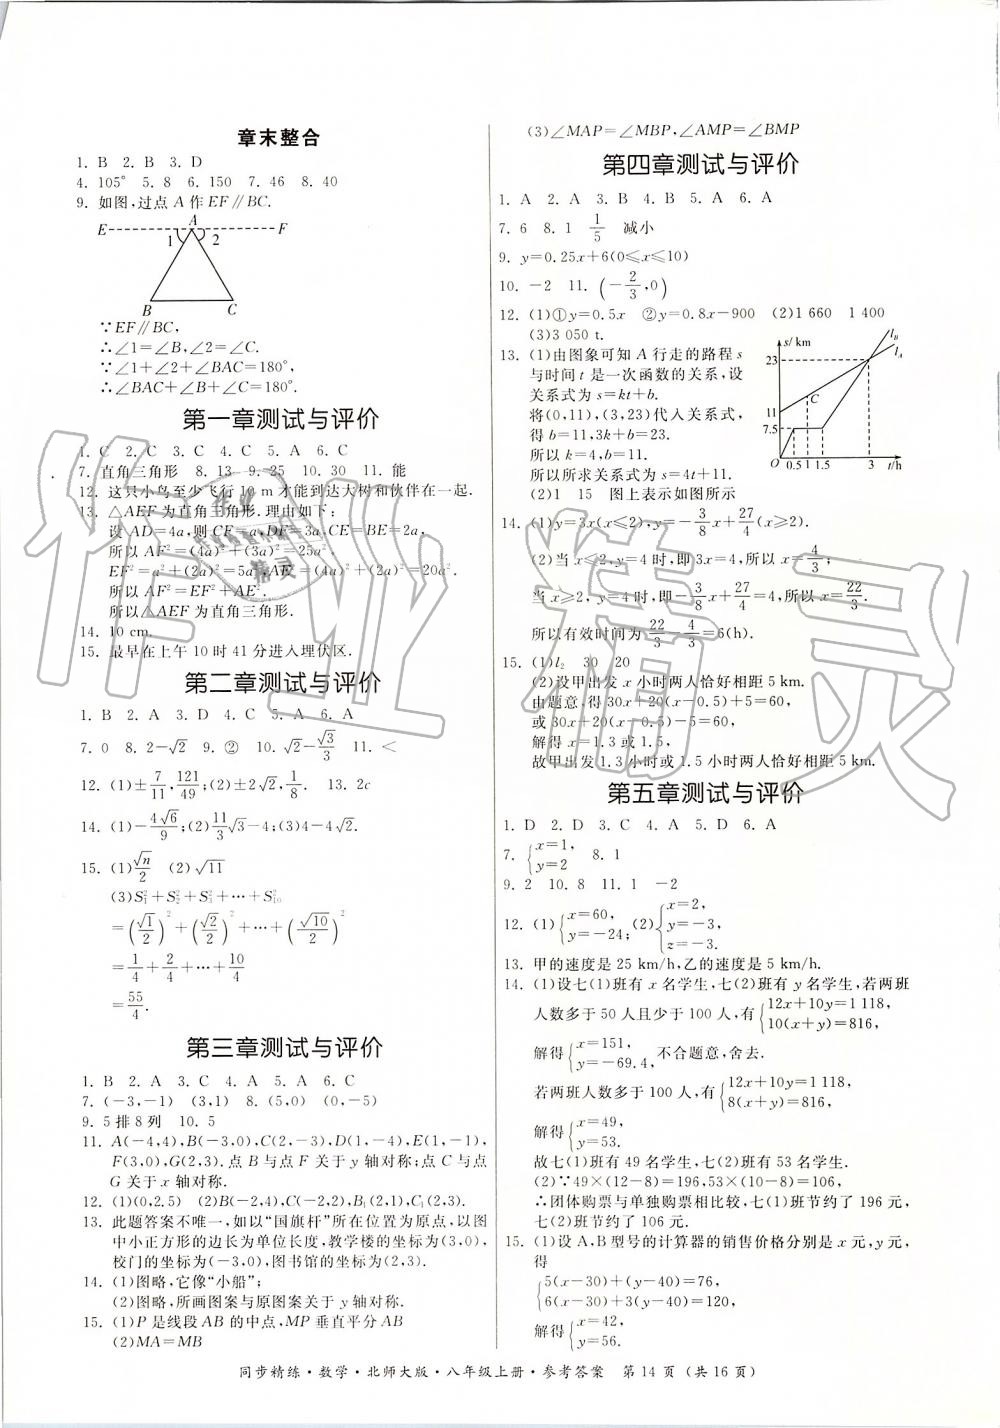 章末整合
1. B  2. B  3. D
4. 105°  5. 8  6. 150  7. 46  8. 40
9. 如图,过点 A 作 EF∥BC.
E A F
1 2
B C
∵EF∥BC,
∴∠1=∠B,∠2=∠C.
∵∠1+∠2+∠BAC=180°,
∴∠BAC+∠B+∠C=180°.
第一章测试与评价
1. C  2. C  3. C  4. C  5. A  6. C
7. 直角三角形  8. 13  9. 25  10. 30  11. 能
12. 这只小鸟至少飞行 10 m 才能到达大树和伙伴在一起.
13. △AEF 为直角三角形. 理由如下:
设 AD=4a,则 CF=a,DF=3a,CE=BE=2a,
所以 AF²=(4a)²+(3a)²=25a²,
EF²=a²+(2a)²=5a²,AE²=(4a)²+(2a)²=20a².
所以 AF²=EF²+AE².
所以△AEF 为直角三角形.
14. 10 cm.
15. 最早在上午 10 时 41 分进入埋伏区.
第二章测试与评价
1. B  2. A  3. D  4. C  5. A  6. A
7. 0  8. 2-√2  9. ②  10. √2-√3/3  11. <
12. (1)±7/11,121/49;(2)±2√2,1/8.  13. 2c
14. (1)-4√6/9;(2)11/3√3-4;(3)4-4√2.
15. (1)√n/2  (2)√11
(3)S₁²+S₂²+S₃²+…+S₁₀²
=(√1/2)²+(√2/2)²+…+(√10/2)²
=1/4+2/4+…+10/4
=55/4.
第三章测试与评价
1. B  2. A  3. C  4. A  5. A  6. C
7. (-3,-1)  (3,1)  8. (5,0)  (0,-5)
9. 5 排 8 列  10. 5
11. A(-4,4),B(-3,0),C(2,-3),D(1,-4),E(1,-1),
F(3,0),G(2,3). 点 B 与点 F 关于 y 轴对称;点 C 与
点 G 关于 x 轴对称.
12. (1)(0,2.5)  (2)B(-2,4),C(-2,2),B₁(2,4),C₁(2,3).
13. 此题答案不唯一,如以“国旗杆”所在位置为原点,以图
中小正方形的边长为单位长度,教学楼的坐标为(3,0),
校门的坐标为(-3,0),图书馆的坐标为(2,3).
14. (1)图略,它像“小船”;
(2)图略,所画图案与原图案关于 y 轴对称.
15. (1)P 是线段 AB 的中点,MP 垂直平分 AB
(2)MA=MB
(3)∠MAP=∠MBP,∠AMP=∠BMP
第四章测试与评价
1. A  2. A  3. B  4. B  5. A  6. A
7. 6  8. 1  1/5  减小
9. y=0.25x+6(0≤x≤10)
10. -2  11. (-2/3,0)
12. (1)①y=0.5x  ②y=0.8x-900  (2)1 660  1 400
(3)3 050 t.
13. (1)由图象可知 A 行走的路程 s
与时间 t 是一次函数的关系,设
关系式为 s=kt+b.
将(0,11),(3,23)代入关系式,
得 b=11,3k+b=23.
所以 k=4,b=11.
所以所求关系式为 s=4t+11.
(2)1  15  图上表示如图所示
s/ km
l_B
l_A
23
C
11
7.5
O 0.5 1 1.5 3 t/h
14. (1)y=3x(x≤2),y=-3/8x+27/4(x≥2).
(2)当 x≤2,y=4 时,即 3x=4,所以 x=4/3;
当 x≥2, y=4 时,即-3/8x+27/4=4,所以 x=22/3.
所以有效时间为22/3-4/3=6(h).
15. (1)l₂  30  20
(2)设甲出发 x 小时两人恰好相距 5 km.
由题意,得 30x+20(x-0.5)+5=60,
或 30x+20(x-0.5)-5=60,
解得 x=1.3 或 1.5,
故甲出发 1.3 小时或 1.5 小时两人恰好相距 5 km.
第五章测试与评价
1. D  2. D  3. C  4. A  5. D  6. A
7. {x=1, y=2  8. 1
9. 2  10. 8  11. 1  -2
12. (1){x=60, y=-24; (2){x=2, y=-3, z=-3.
13. 甲的速度是 25 km/h,乙的速度是 5 km/h.
14. (1)设七(1)班有 x 名学生,七(2)班有 y 名学生,若两班
人数多于 50 人且少于 100 人,有{12x+10y=1 118, 10(x+y)=816,
解得{x=151, y=-69.4, 不合题意,舍去.
若两班人数多于 100 人,有{12x+10y=1 118, 8(x+y)=816,
解得{x=49, y=53.
故七(1)班有 49 名学生,七(2)班有 53 名学生.
(2)∵49×(12-8)=196,53×(10-8)=106,
∴团体购票与单独购票相比较,七(1)班节约了 196 元,
七(2)班节约了 106 元.
15. (1)设 A,B 型号的计算器的销售价格分别是 x 元,y 元,
得
{5(x-30)+(y-40)=76, 6(x-30)+3(y-40)=120,
解得{x=42, y=56.
同步精练·数学·北师大版·八年级上册·参考答案  第 14 页 (共 16 页)
作业精灵